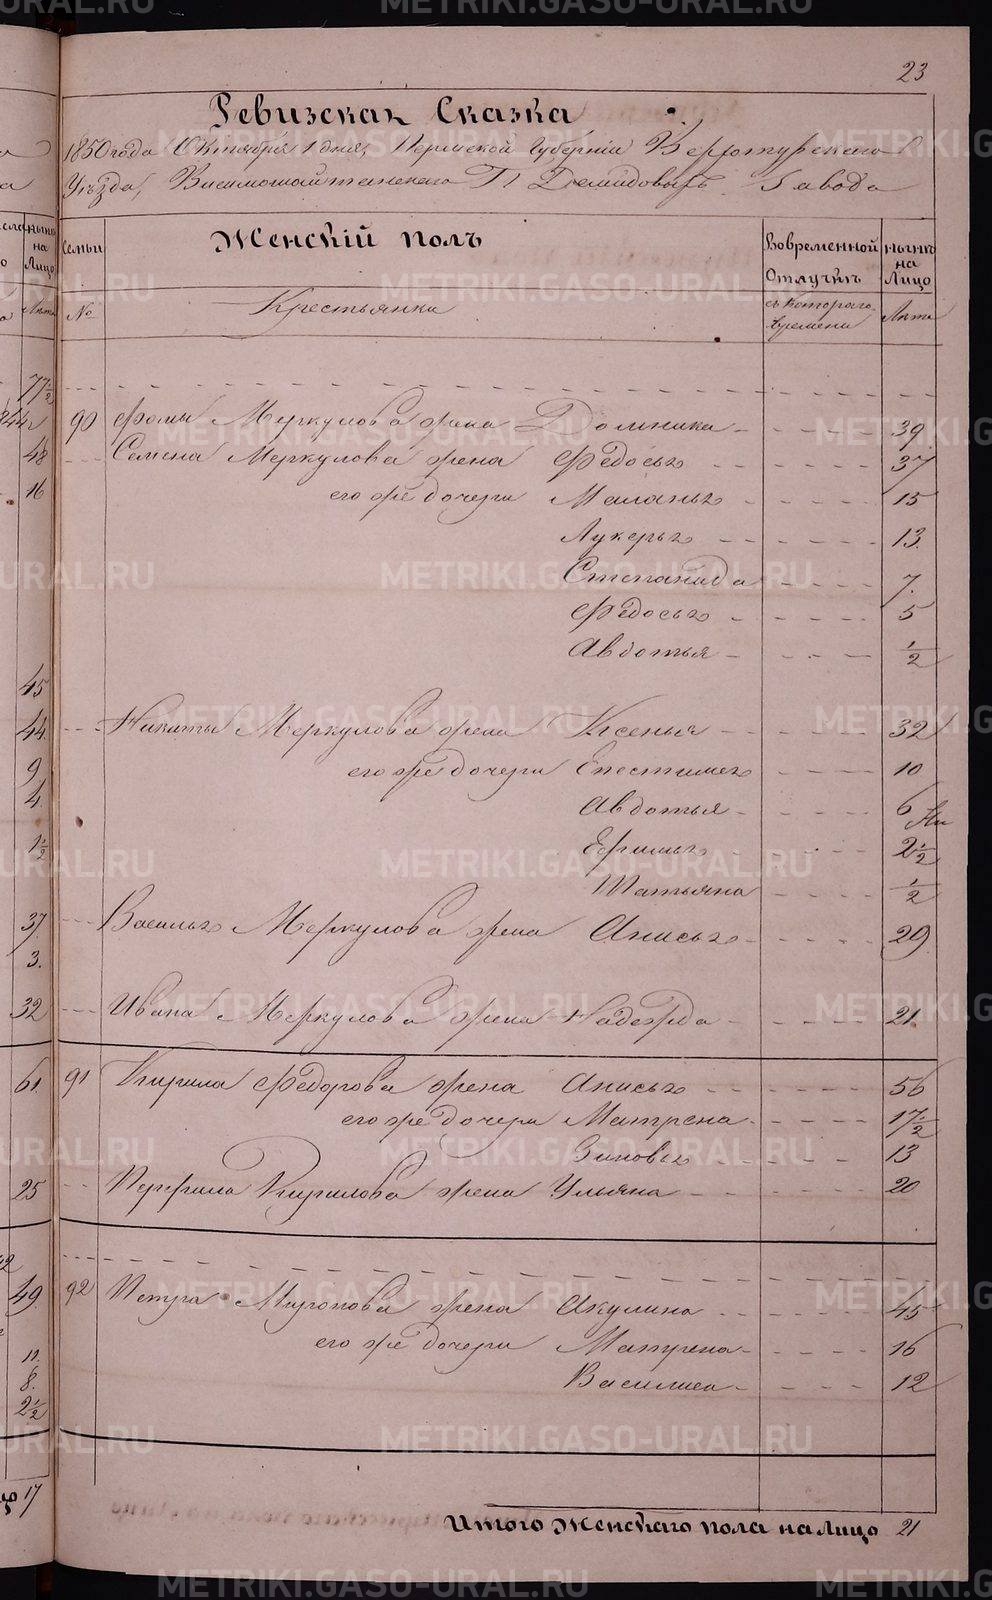 23
Ревизская Сказка
1850 года Октября 1 дня, Пермской Губерніи Верхотурскаго
Уѣзда, Висимошайтанскаго Гг Демидовыхъ Завода
Семьи Женскій полъ Вовременной Отлучкѣ нынѣ на Лицо
№ Крестьянки съ котораго времени Лѣта
90 Фомы Меркулова жена Домника 39
Семена Меркулова жена Федосья 37
его же дочери Маланья 15
Лукерья 13.
Степанида 7.
Федосья 5
Авдотья 1/2
Никиты Меркулова жена Ксенья 32
его же дочери Епестимея 10
Авдотья 6
Ефимья 2 1/2
Татьяна 1/2
Василья Меркулова жена Анисья 29
Ивана Меркулова жена Надежда 21
91 Кирила Федорова жена Анисья 56
его же дочери Матрена 17 1/2
Зиновья 13
Перфила Кирилова жена Ульяна 20
92 Петра Миронова жена Акулина 45
его же дочери Матрена 16
Василиса 12
Итого Женскаго пола на Лицо 21
METRIKI.GASO-URAL.RU